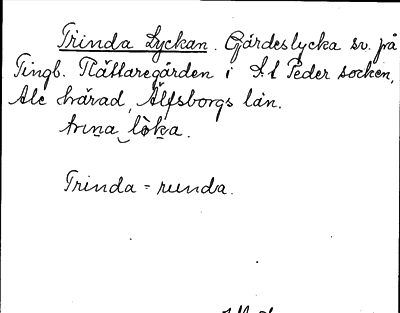 Trinda Lyckan. Gjärdeslycka sv. på
Tingb. Rättaregården i S:t Peder socken,
Ale härad, Älfsborgs län.
trina lòka.
Trinda = runda.